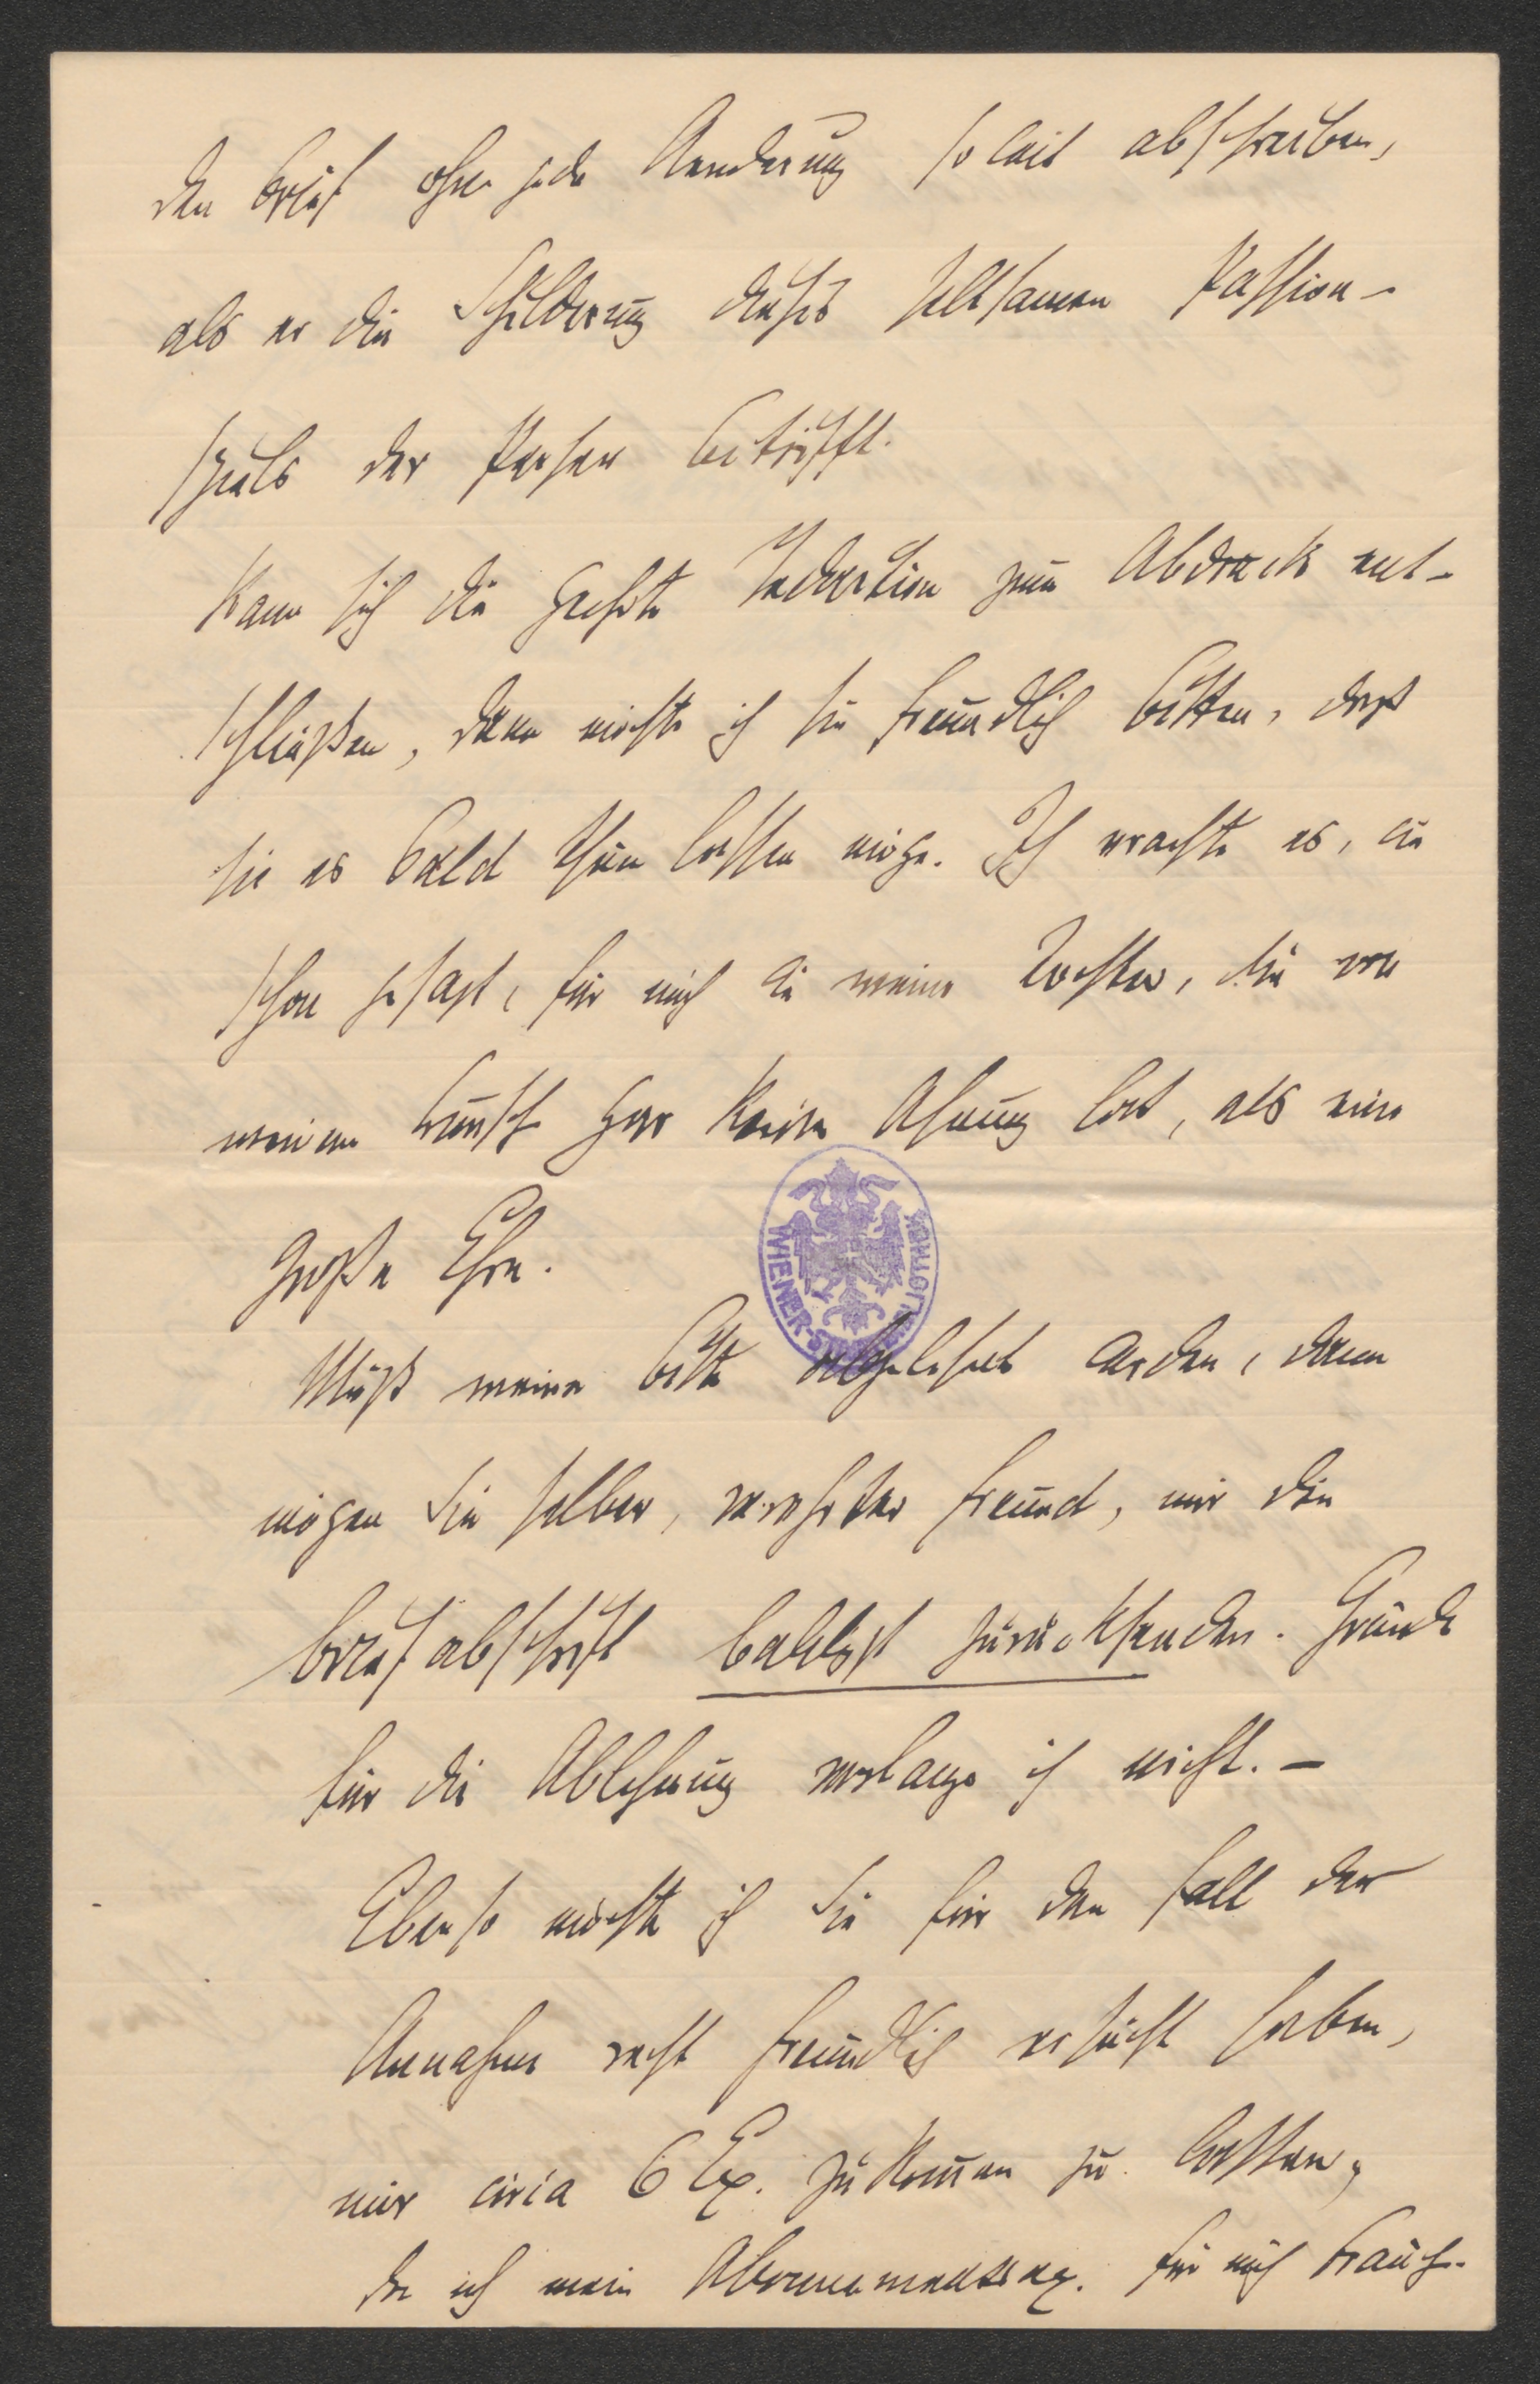 den Brief ohne jede Aenderung so weit abschreiben,
als er die Schilderung dieses seltsamen Passion-
spiels der Perser betrifft.
Kann sich die geehrte Redaction zum Abdruck ent-
schließen, dann möchte ich sie freundlich bitten, daß
sie es bald thun lassen möge. Ich erachte es, wie
schon gesagt, für mich wie meine Tochter, die von
meinem Wunsch gar keine Ahnung hat, als eine
große Ehre.
Muß meine Bitte abgelehnt werden, dann
mögen Sie selber, verehrter Freund, mir die
Briefabschrift baldigst zurücksenden. Gründe
für die Ablehnung verlange ich nicht. –
Ebenso möchte ich Sie für den Fall der
Annahme recht freundlich ersucht haben,
mir circa 6 Ex. zukommen zu lassen,
da ich mein Abonnementsex. für mich brauche.
WIENER-STADT-BIBLIOTHEK